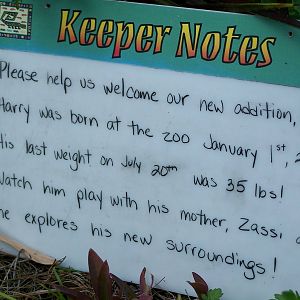 Keeper Notes
Please help us welcome our new addition,
Harry was born at the zoo January 1st,
His last weight on July 20th was 35 lbs!
Watch him play with his mother, Zassi
he explores his new surroundings!